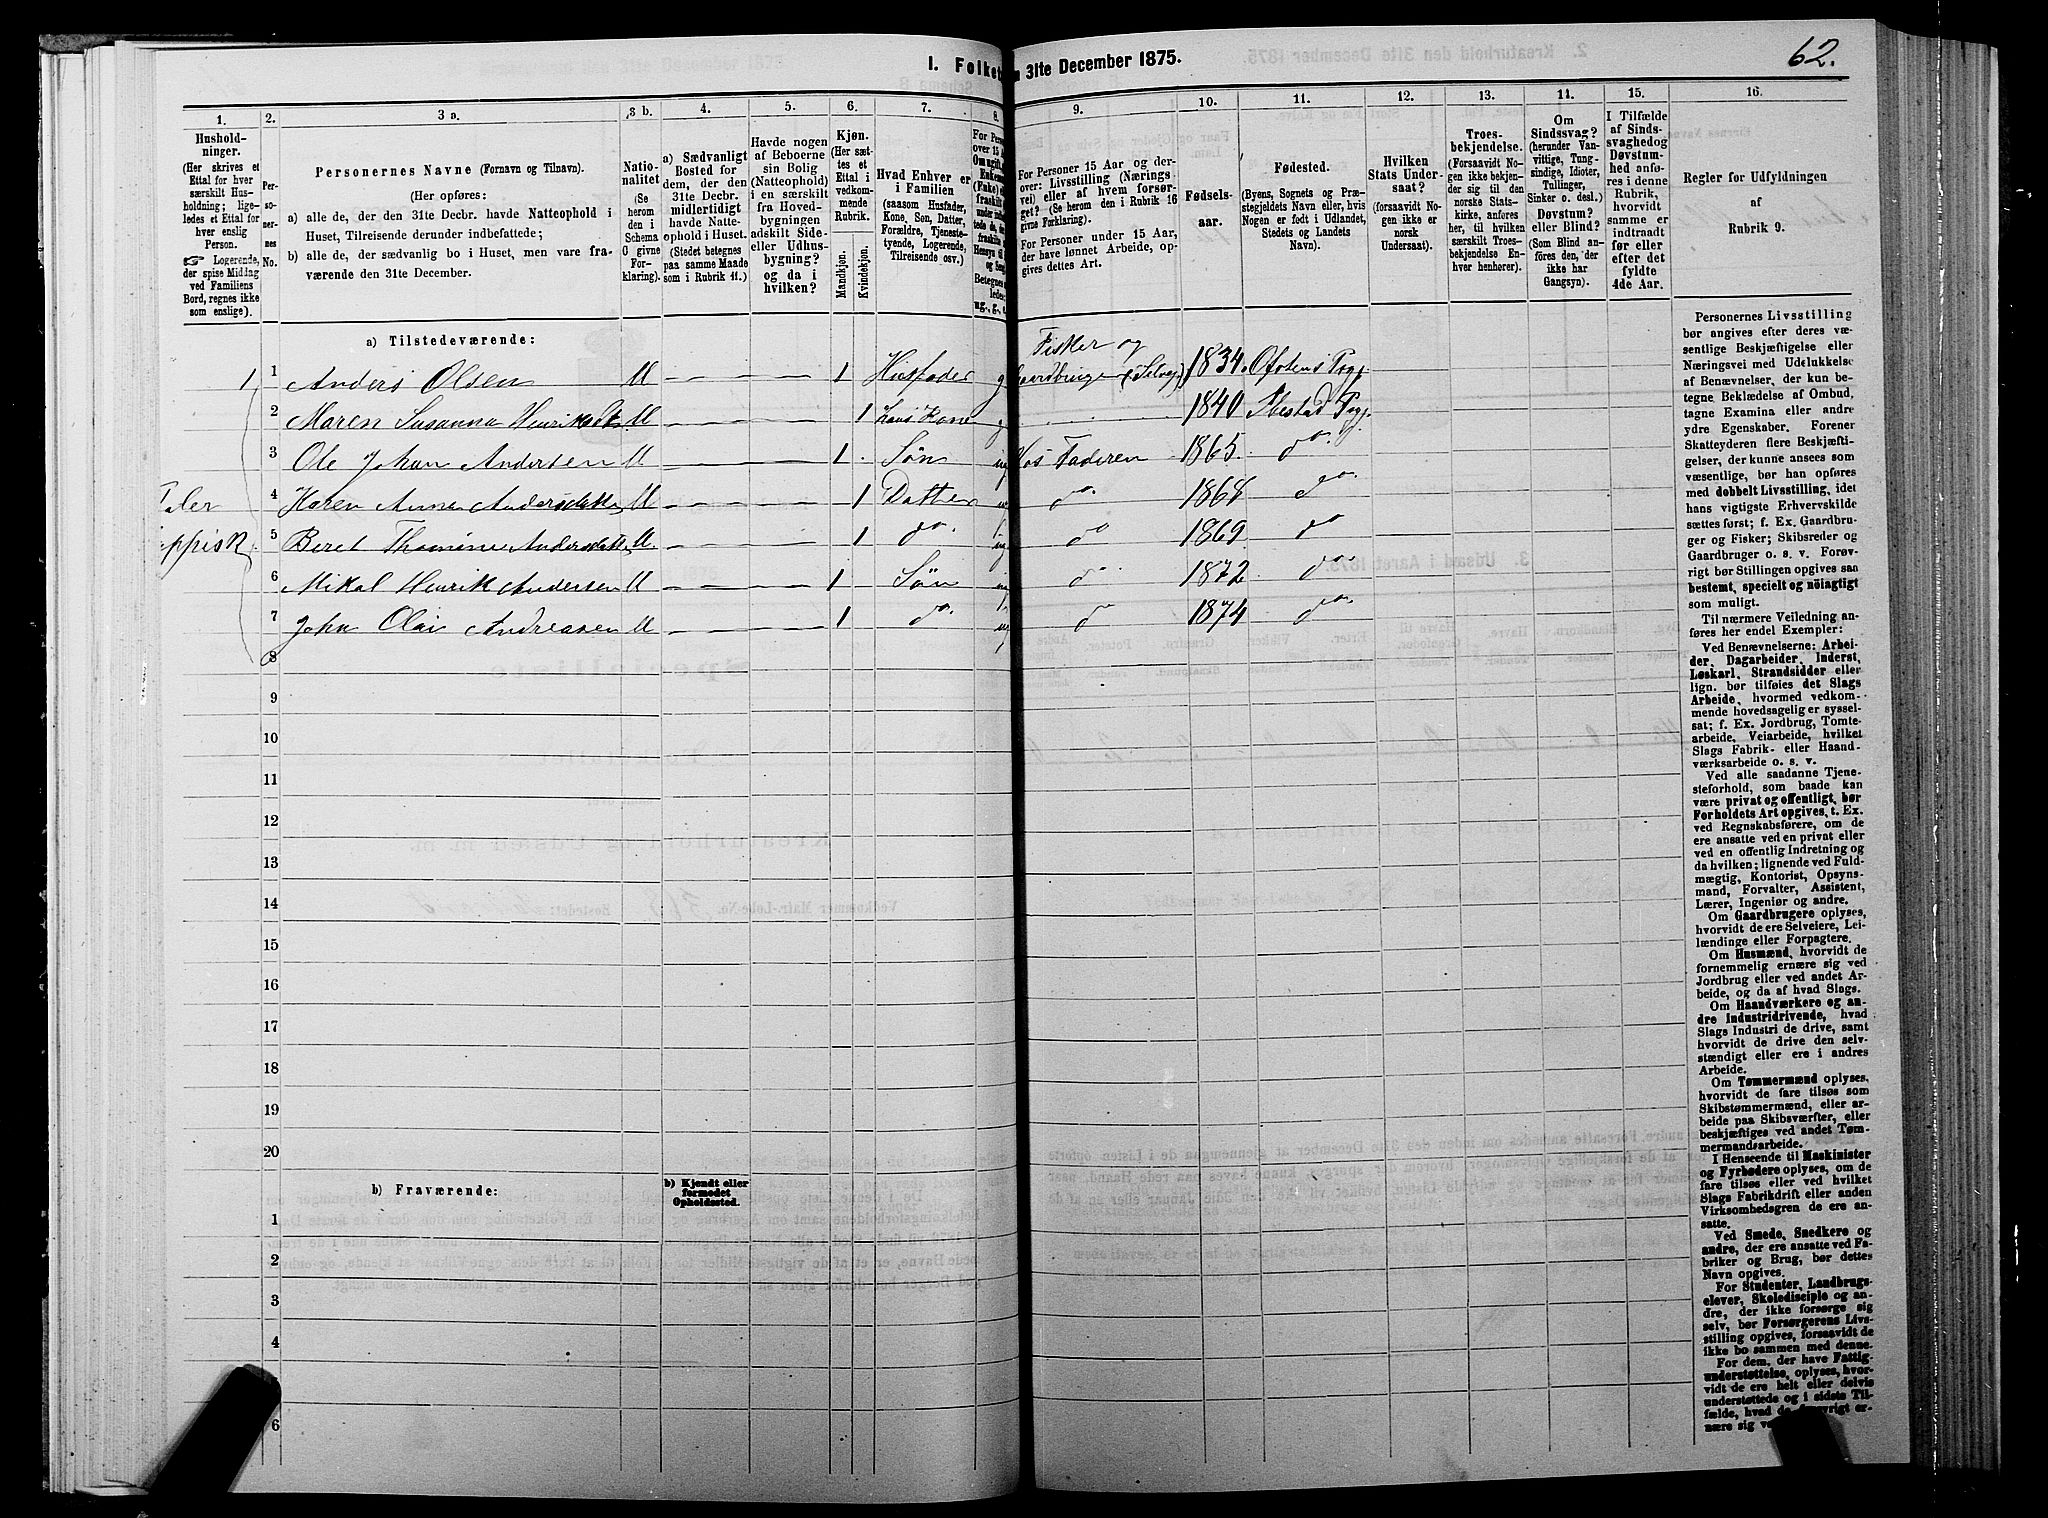 I. Folket
n 31te December 1875.
62.
1. 2. 3 a. 3 b. 4. 5. 6. 7. 8. 9. 10. 11. 12. 13. 14. 15. 16.
Hushold-
ninger.
(Her skrives et
Ettal for hver
særskilt Hus-
holdning; lige-
ledes et Ettal for
hver enslig
Person.
☞ Logerende,
der spise Middag
ved Familiens
Bord, regnes ikke
som enslige).
Per-
so-
ner-
nes
No.
Personernes Navne (Fornavn og Tilnavn).
(Her opføres:
a) alle de, der den 31te Decbr. havde Natteophold i
Huset, Tilreisende derunder indbefattede;
b) alle de, der sædvanlig bo i Huset, men vare fra-
værende den 31te December.)
Natio-
nalitet
(Se
herom
den i
Schema
G givne
For-
klaring).
a) Sædvanligt
Bosted for
dem, der den
31te Decbr.
midlertidigt
havde Natte-
ophold i Huset.
(Stedet betegnes
paa samme Maade
som i Rubrik 11.)
Havde nogen
af Beboerne
sin Bolig
(Natteophold)
i en særskilt
fra Hoved-
bygningen
adskilt Side-
eller Udhus-
bygning?
og da i
hvilken?
Kjøn.
(Her sæt-
tes et
Ettal i
vedkom-
mende
Rubrik.
Mandkjøn.
Kvindekjøn.
Hvad Enhver er
i Familien
(saasom Husfader,
Kone, Søn, Datter,
Forældre, Tjeneste-
tyende, Logerende,
Tilreisende osv.)
For Personer 15 Aar og der-
over: Livsstilling (Nærings-
vei) eller af hvem forsør-
get? (Se herom den i Rubrik 16
givne Forklaring).
For Personer under 15 Aar,
der have lønnet Arbeide, op-
gives dettes Art.
Fødsels-
aar.
Fødested.
(Byens, Sognets og Præ-
stegjeldets Navn eller, hvis
Nogen er født i Udlandet,
Stedets og Landets
Navn).
Hvilken
Stats Under-
saat?
(forsaavidt No-
gen ikke er
norsk
Undersaat).
Troes-
bekjendelse.
(Forsaavidt No-
gen ikke bekjen-
der sig til den
norske Stats-
kirke, anføres
her, til hvilken
særskilt Troes-
bekjendelse En-
hver henhører).
Om
Sindssvag?
(herunder Van-
vittige, Tung-
sindige, Idioter,
Tullinger,
Sinker o. desl.)
Døvstum?
eller Blind?
(Som Blind an-
føres den, der
ikke har
Gangsyn).
I Tilfælde
af Sinds-
svaghed og
Døvstum-
hed anfø-
res i denne
Rubrik,
hvorvidt
samme er
indtraadt
før eller
efter det
fyldte
4de Aar.
Regler for Udfyldningen
af
Rubrik 9.
a) Tilstedeværende:
Fisker og
1 1 Anders Olsen M 1 Husfader g Gaardbruger (Selvej) 1834. Ofotens Prgj
2 Maren Susanna Henriksdt. M 1 hans Kone g 1840 Ibestad Prgj.
3 Ole Johan Andersen M 1 Søn ug Hos Faderen 1865. do.
4 Karen Anna Andersdatter M 1 Datter ug do. 1867 do.
5 Beret Thomine Andersdatt. M. 1 do. ug do 1869. do
6 Mikal Henrik Andersen M 1 Søn ug do 1872 do.
7 John Olai Andreasen M 1 do. ug do 1874 do.
8
9
10
11
12
13
14
15
16
17
18
19
20
b) Fraværende:
b) Kjendt eller
formodet
Opholdssted.
1
2
3
4
6
Personernes Livsstilling
bør angives efter deres væ-
sentlige Beskjæftigelse eller
Næringsvei med Udelukkelse
af Benævnelser, der kun be-
tegne Beklædelse af Ombud,
tagne Examina eller andre
ydre Egenskaber. Forener
Skatteyderen flere Beskjæfti-
gelser, der kunne ansees som
væsentlige, bør han opføres
med dobbelt Livsstilling, idet
hans vigtigste Erhvervskilde
sættes først; f. Ex. Gaardbru-
ger og Fisker; Skibsreder og
Gaardbruger o. s. v. Forøv-
rigt bør Stillingen opgives saa
bestemt, specielt og nøiagtigt
som muligt.
Til nærmere Veiledning an-
føres her endel Exempler:
Ved Benævnelserne: Arbei-
der, Dagarbeider, Inderst,
Løskarl, Strandsidder eller
lign. bør tilføies det Slags
Arbeide, hvormed vedkom-
mende hovedsagelig er syssel-
sat; f. Ex. Jordbrug, Tomte-
arbeide, Veiarbeide, hvilket
Slags Fabrik- eller Haand-
værksarbeide o. s. v.
Ved alle saadanne Tjene-
steforhold, som baade kan
være privat og offentligt, bør
Forholdets Art opgives, t. Ex.
ved Regnskabsførere, om de
ere ansatte ved en privat eller
ved en offentlig Indretning og
da hvilken; lignende ved Fuld-
mægtig, Kontorist, Opsyns-
mand, Forvalter, Assistent,
Lærer, Ingeniør og andre.
Om Gaardbrugere oplyses,
hvorvidt de ere Selveiere, Lei-
lændinge eller Forpagtere.
Om Husmænd, hvorvidt de
fornemmelig ernære sig ved
Jordbrug eller ved andet Ar-
beide, og da af hvad Slags.
Om Haandværkere og an-
dre industridrivende, hvad
Slags Industri de drive, samt
hvorvidt de drive den selv-
stændigt eller ere i andres
Arbeide.
Om Tømmermænd oplyses,
hvorvidt de fare tilsøs som
Skibstømmermænd, eller ar-
beide paa Skibsværfter, eller
beskjæftiges ved andet Tøm-
mermandsarbeide.
I Henseende til Maskinister
og Fyrbødere oplyses, om de
fare tilsøs eller ved hvilket
Slags Fabrikdrift eller anden
Virksomhedsgren de ere an-
satte.
Ved Smede, Snedkere og
andre, der ere ansatte ved Fa-
briker og Brug, bør dettes
Navn opgives.
For Studenter, Landbrugs-
elever, Skoledisciple og an-
dre, der ikke forsørge sig
selv, bør Forsørgerens Livs-
stilling opgives, forsaavidt de
ikke bo sammen med denne.
For dem, der have Fattig-
understøttelse, oplyses, hvor-
vidt de ere helt eller delvis
understøttede og i sidste Til-
fælde, hvad de øvrigt er-
nære sig ved.